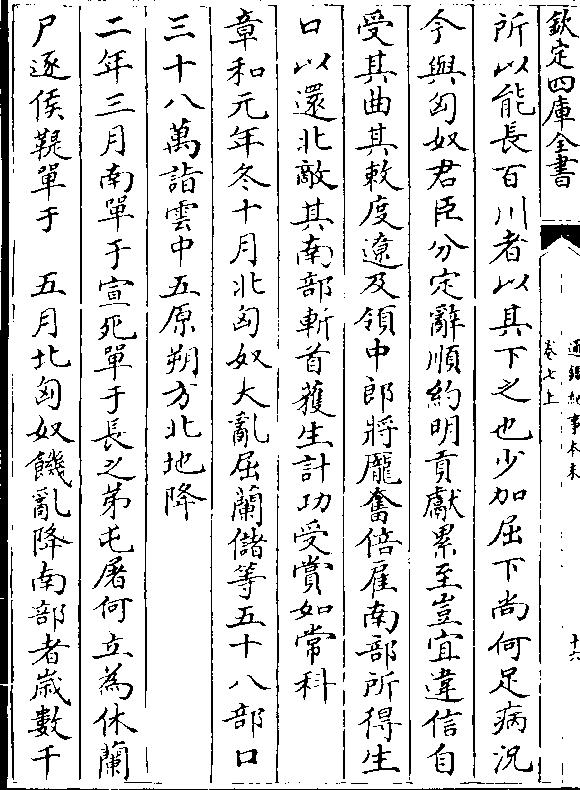 欽定四庫全書
通鑑紀事本末
卷七上
十六
所以能長百川者以其下之也少加屈下尚何足病況
今與匈奴君臣分定辭順約明貢獻累至豈宜違信自
受其曲其敕度遼及領中郎將龐奮倍雇南部所得生
口以還北敵其南部斬首獲生計功受賞如常科
章和元年冬十月北匈奴大亂屈蘭儲等五十八部口
三十八萬詣雲中五原朔方北地降
二年三月南單于宣死單于長之弟屯屠何立為休蘭
尸逐侯鞮單于　五月北匈奴饑亂降南部者歲數千